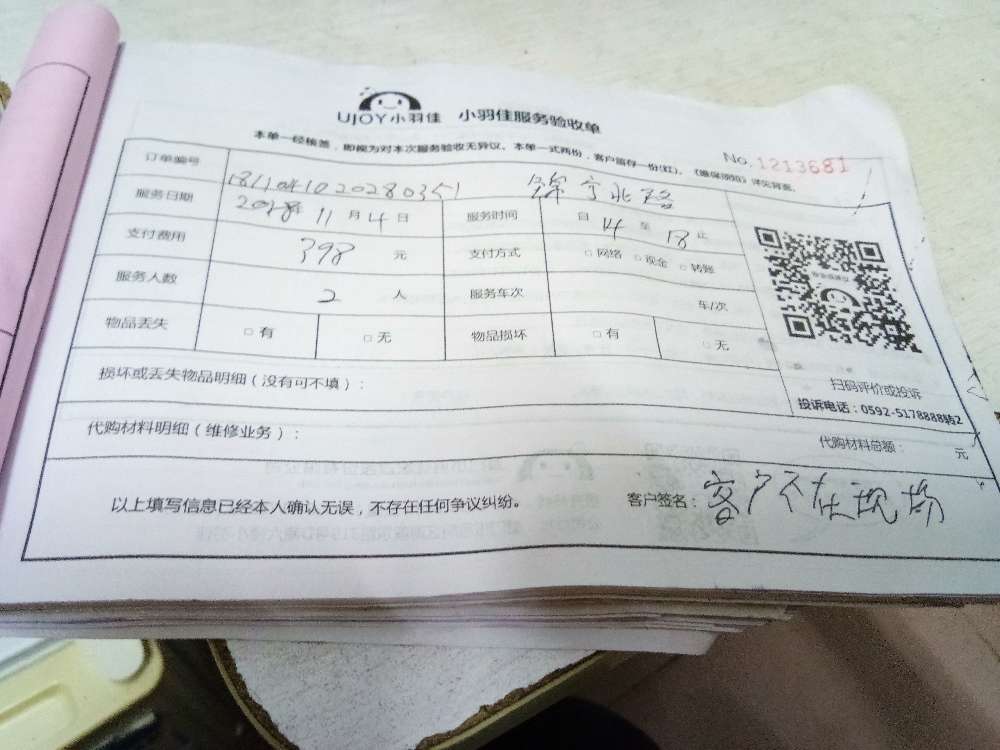 UJOY小羽佳 小羽佳服务验收单
No. 1213681
本单一经核签，即视为对本次服务验收无异议。本单一式两份，客户留存一份(红)。《维保须知》详见背面。
订单编号 181104102028035 1 锦宁北路
服务日期 2018年 11 月 4 日 服务时间 自 14 至 18 止
支付费用 398 元 支付方式 □ 网络 □ 现金 □ 转账
服务人数 2 人 服务车次 车/次
物品丢失 □ 有 □ 无 物品损坏 □ 有 □ 无
扫码评价或投诉
投诉电话：0592-5178888转2
损坏或丢失物品明细（没有可不填）：
代购材料明细（维修业务）： 代购材料总额： 元
以上填写信息已经本人确认无误，不存在任何争议纠纷。 客户签名：客户不在现场